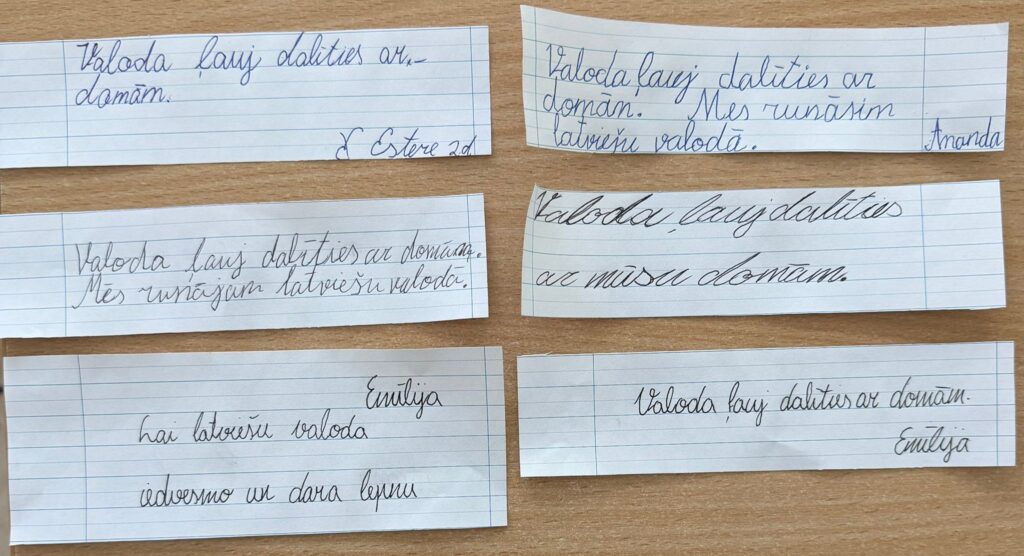 Valoda ļauj dalīties ar
domām.
Estere 2d
Valoda ļauj dalīties ar
domām. Mēs runāsim
latviešu valodā.
Ananda
Valoda ļauj dalīties ar domām.
Mēs runājam latviešu valodā.
Valoda ļauj dalīties
ar mūsu domām.
Emīlija
Lai latviešu valoda
iedvesmo un dara lepnu
Valoda ļauj dalīties ar domām.
Emīlija